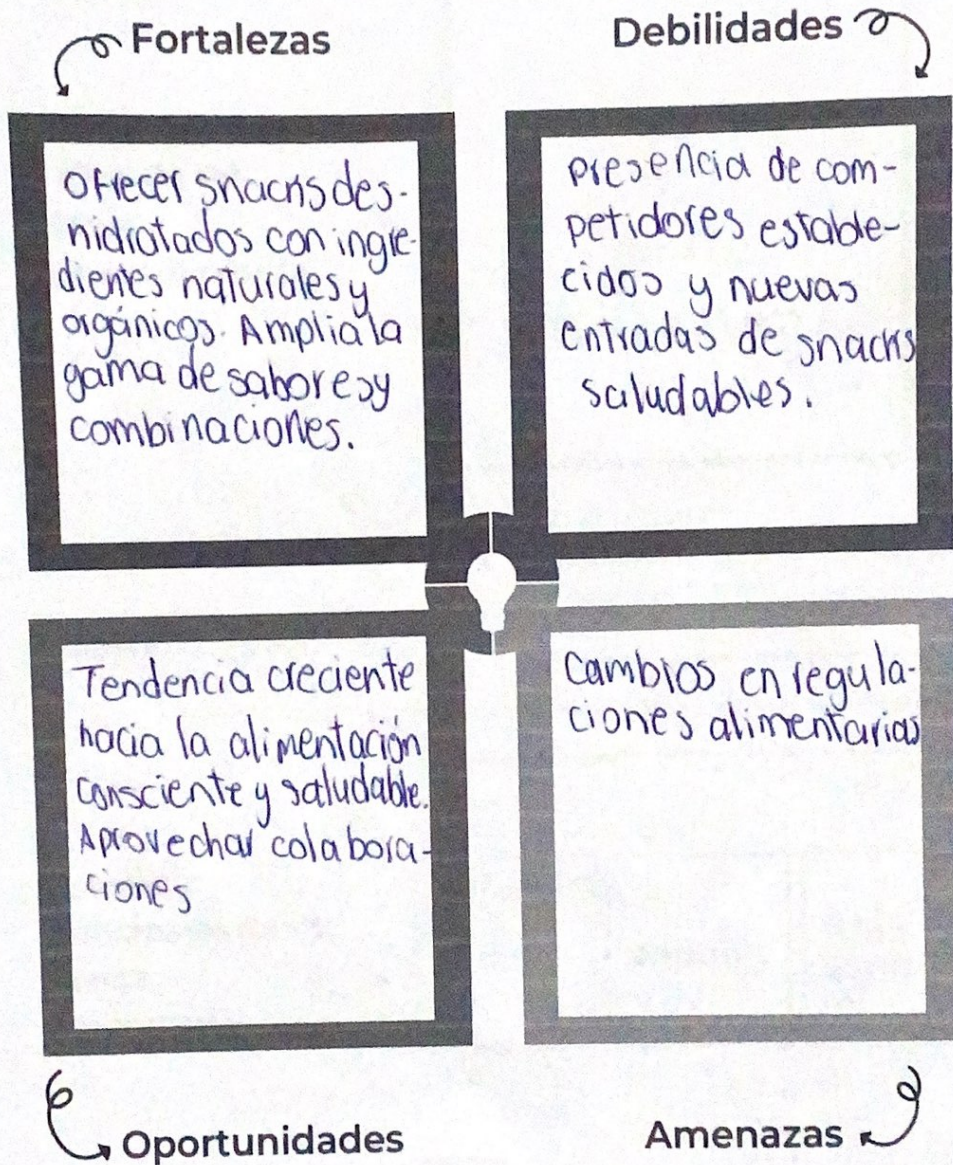 Fortalezas
Ofrecer snacks des-
hidratados con ingre-
dientes naturales y
orgánicos. Amplia la
gama de sabores y
combinaciones.
Debilidades
presencia de com-
petidores estable-
cidos y nuevas
entradas de snacks
saludables.
Tendencia creciente
hacia la alimentación
consciente y saludable.
Aprovechar colabora-
ciones
Oportunidades
Cambios en regula-
ciones alimentarias
Amenazas